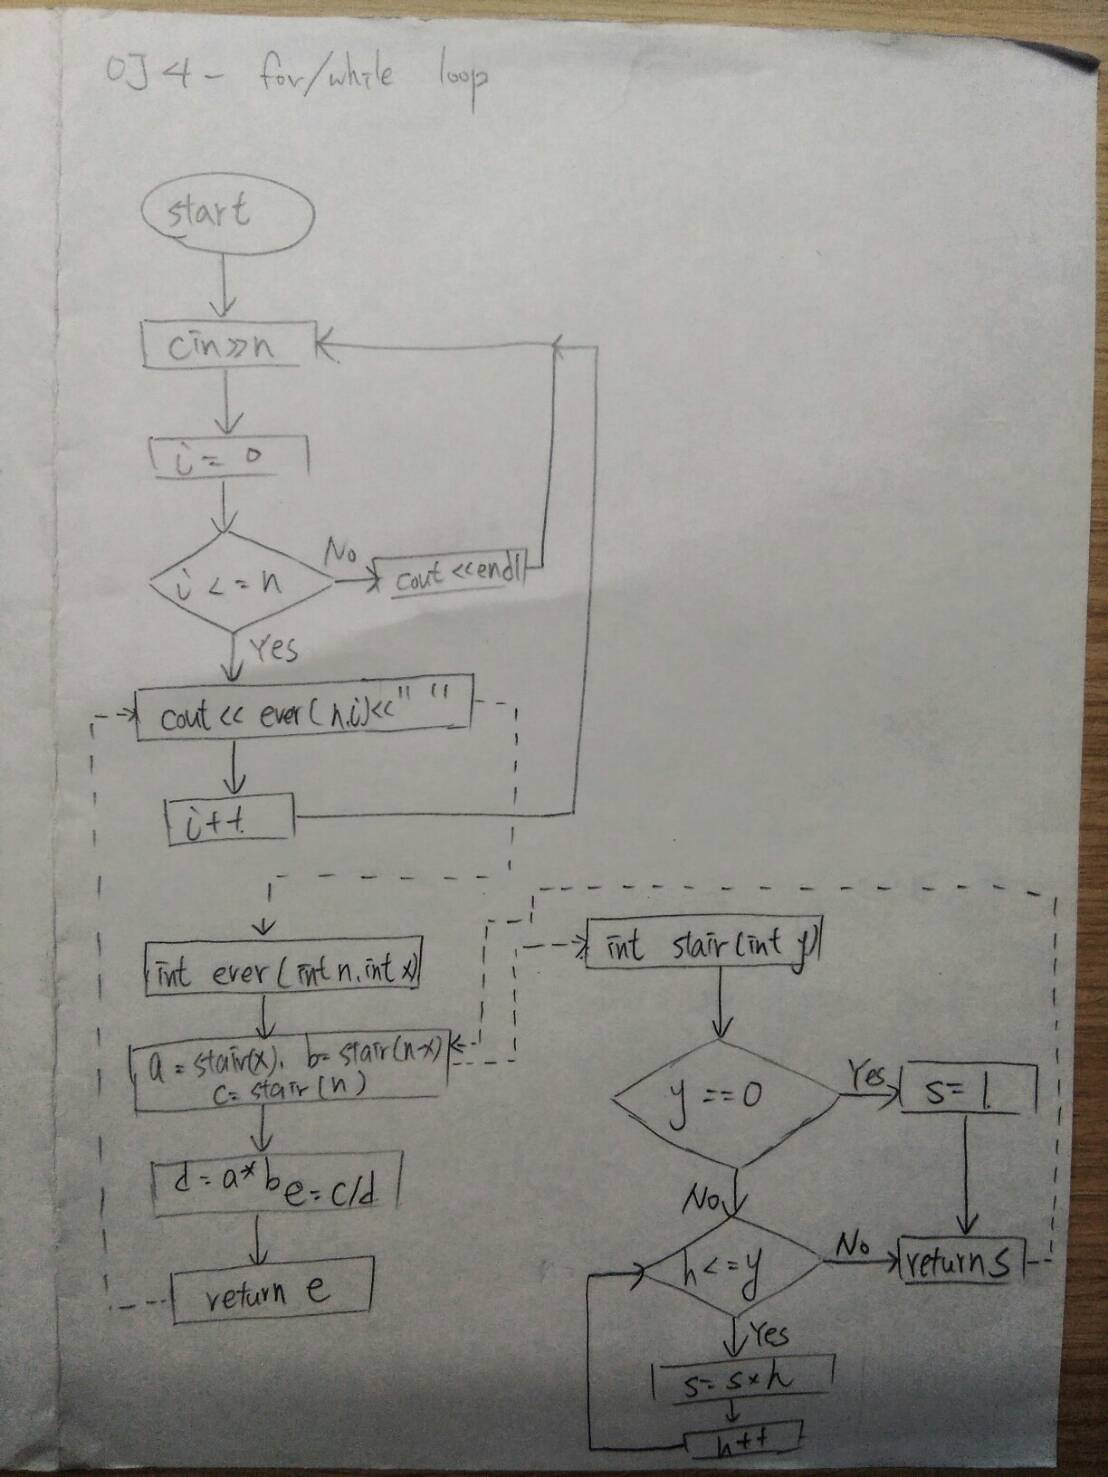 OJ 4 - for/while loop
start
cin>>n
i = 0
i <= n
No
cout <<endl
Yes
cout << ever(n,i)<<" "
i++
int ever(int n,int x)
a = stair(x), b= stair(n-x)
c= stair(n)
d= a*b e= c/d
return e
int stair(int y)
y ==0
Yes
s= 1
No
h<=y
No
return s
Yes
s= s*h
h++